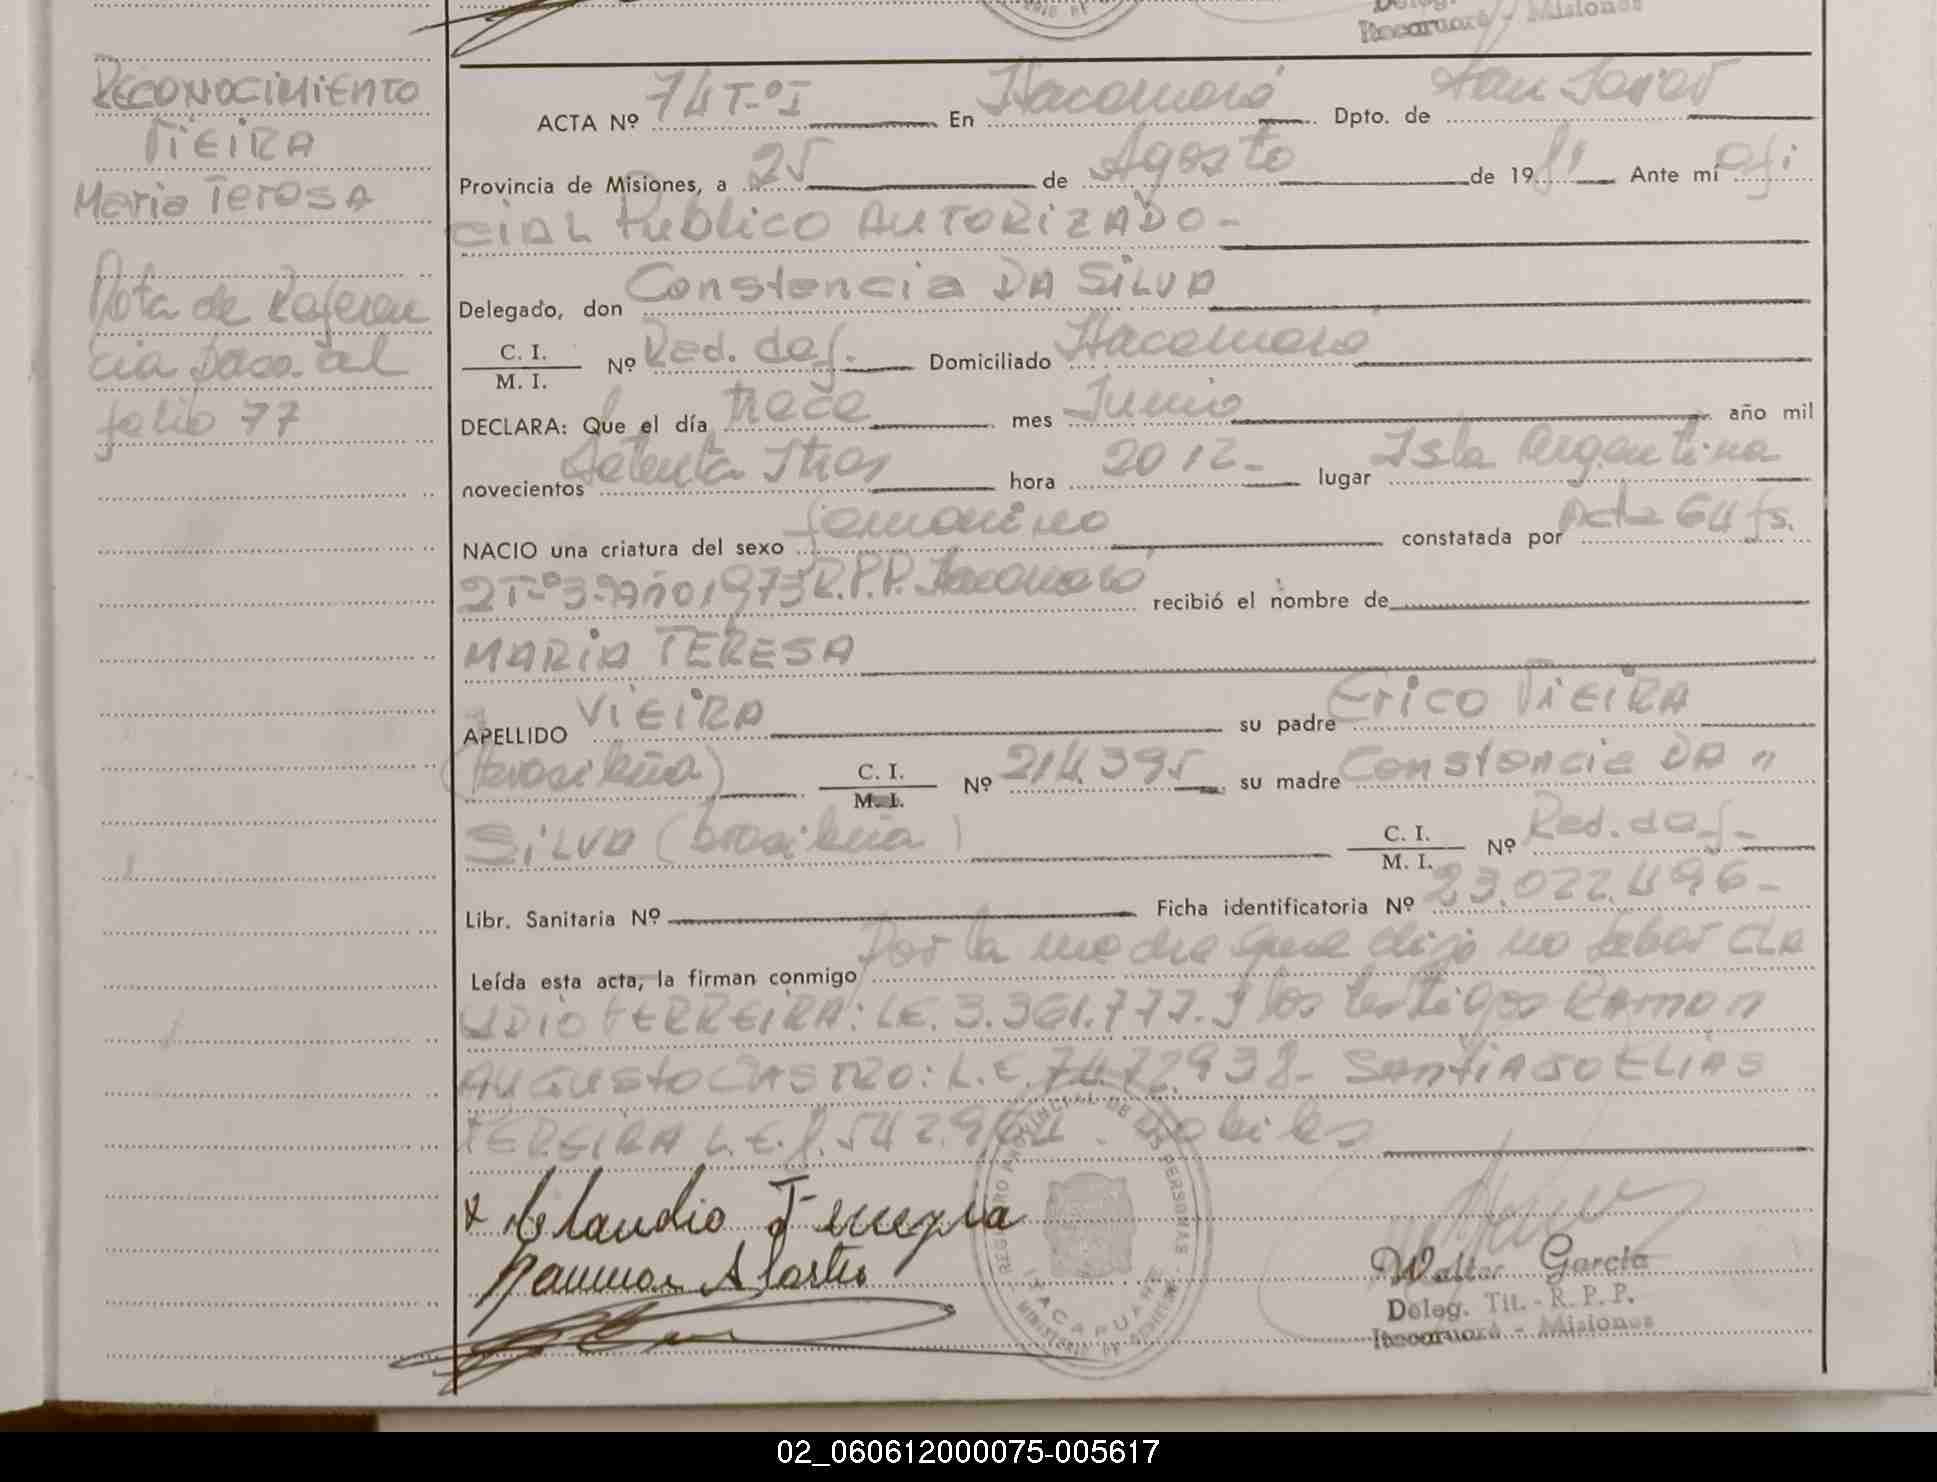 Deleg.
Itacaruaré - Misiones
RECONOCIMIENTO
VIEIRA
Maria Teresa
Nota de Referen
cia paso al
folio 77
ACTA Nº 74 T-º I En Itacaruaré Dpto. de San Javier
Provincia de Misiones, a 25 de Agosto de 1981 Ante mí ofi
CIAL Publico AUTORIZADO-
Delegado, don Constancia DA SILVA
C. I. / M. I. Nº Red. def. Domiciliado Itacaruaré
DECLARA: Que el día trece mes Junio año mil
novecientos setenta y tres hora 20 12- lugar Isla Argentina
NACIO una criatura del sexo femenino constatada por Acta 64 fs.
2 T-º 3-Año 1973 R.P.P. Itacaruaré recibió el nombre de
MARIA TERESA
APELLIDO VIEIRA su padre Erico VIEIRA
(brasileña) C. I. / M. I. Nº 214.395 su madre Constancia DA
SILVA (brasileña) C. I. / M. I. Nº Red. def.-
Libr. Sanitaria Nº Ficha identificatoria Nº 23.022.496-
Leída esta acta, la firman conmigo Por la madre que dijo no saber CLA
UDIO FERREIRA: L.E. 3.361.777. y los testigos RAMON
AUGUSTO CASTRO: L.E. 7.472.938- SANTIAGO ELIAS
FEREIRA L.E. 8.542.964. habiles
x Claudio Ferreyra
Ramon A Castro
REGISTRO PROVINCIAL DE LAS PERSONAS
ITACARUARE
MINISTERIO DE GOBIERNO
Walter García
Deleg. Tit. - R. P. P.
Itacaruaré - Misiones
02_060612000075-005617